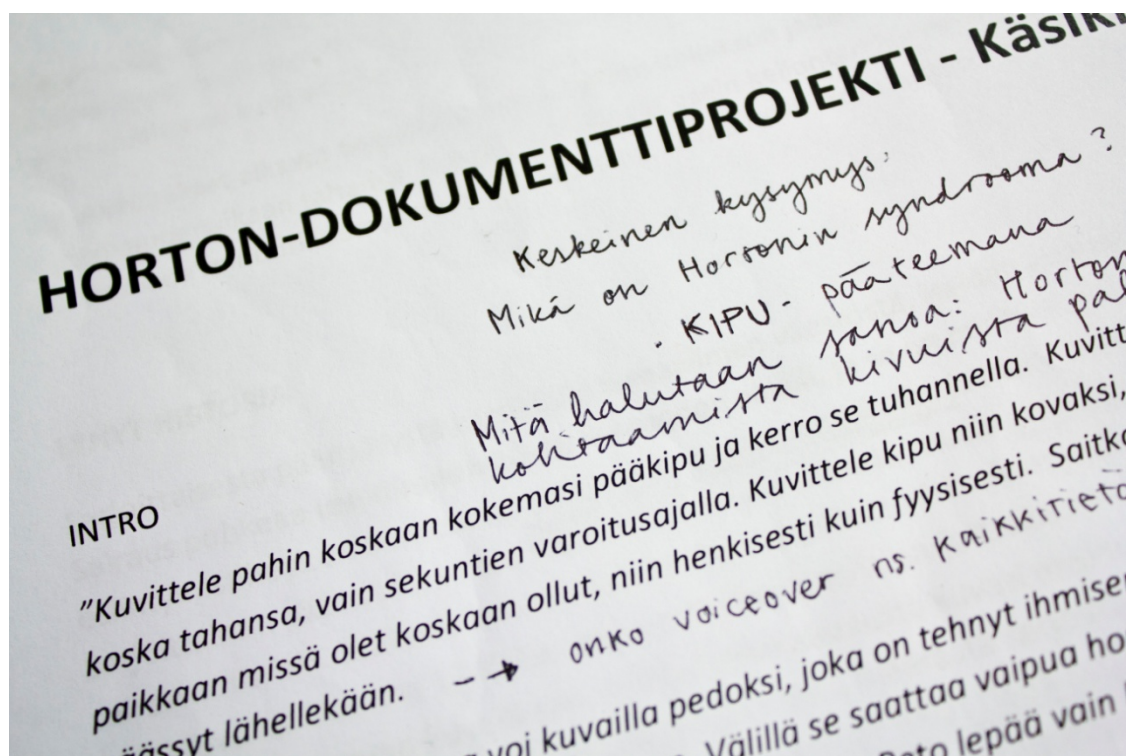 HORTON-DOKUMENTTIPROJEKTI - Käsiki
Keskeinen kysymys:
Mikä on Hortonin syndrooma?
· KIPU - pääteemana
Mitä halutaan sanoa: Horton
kohtaamista kivuista
INTRO
”Kuvittele pahin koskaan kokemasi pääkipu ja kerro se tuhannella. Kuvitt
koska tahansa, vain sekuntien varoitusajalla. Kuvittele kipu niin kovaksi,
paikkaan missä olet koskaan ollut, niin henkisesti kuin fyysisesti. Saitko
äässyt lähellekään.
--> onko voiceover ns. kaikkitietä
voi kuvailla pedoksi, joka on tehnyt ihmise
Välillä se saattaa vaipua ho
Peto lepää vain